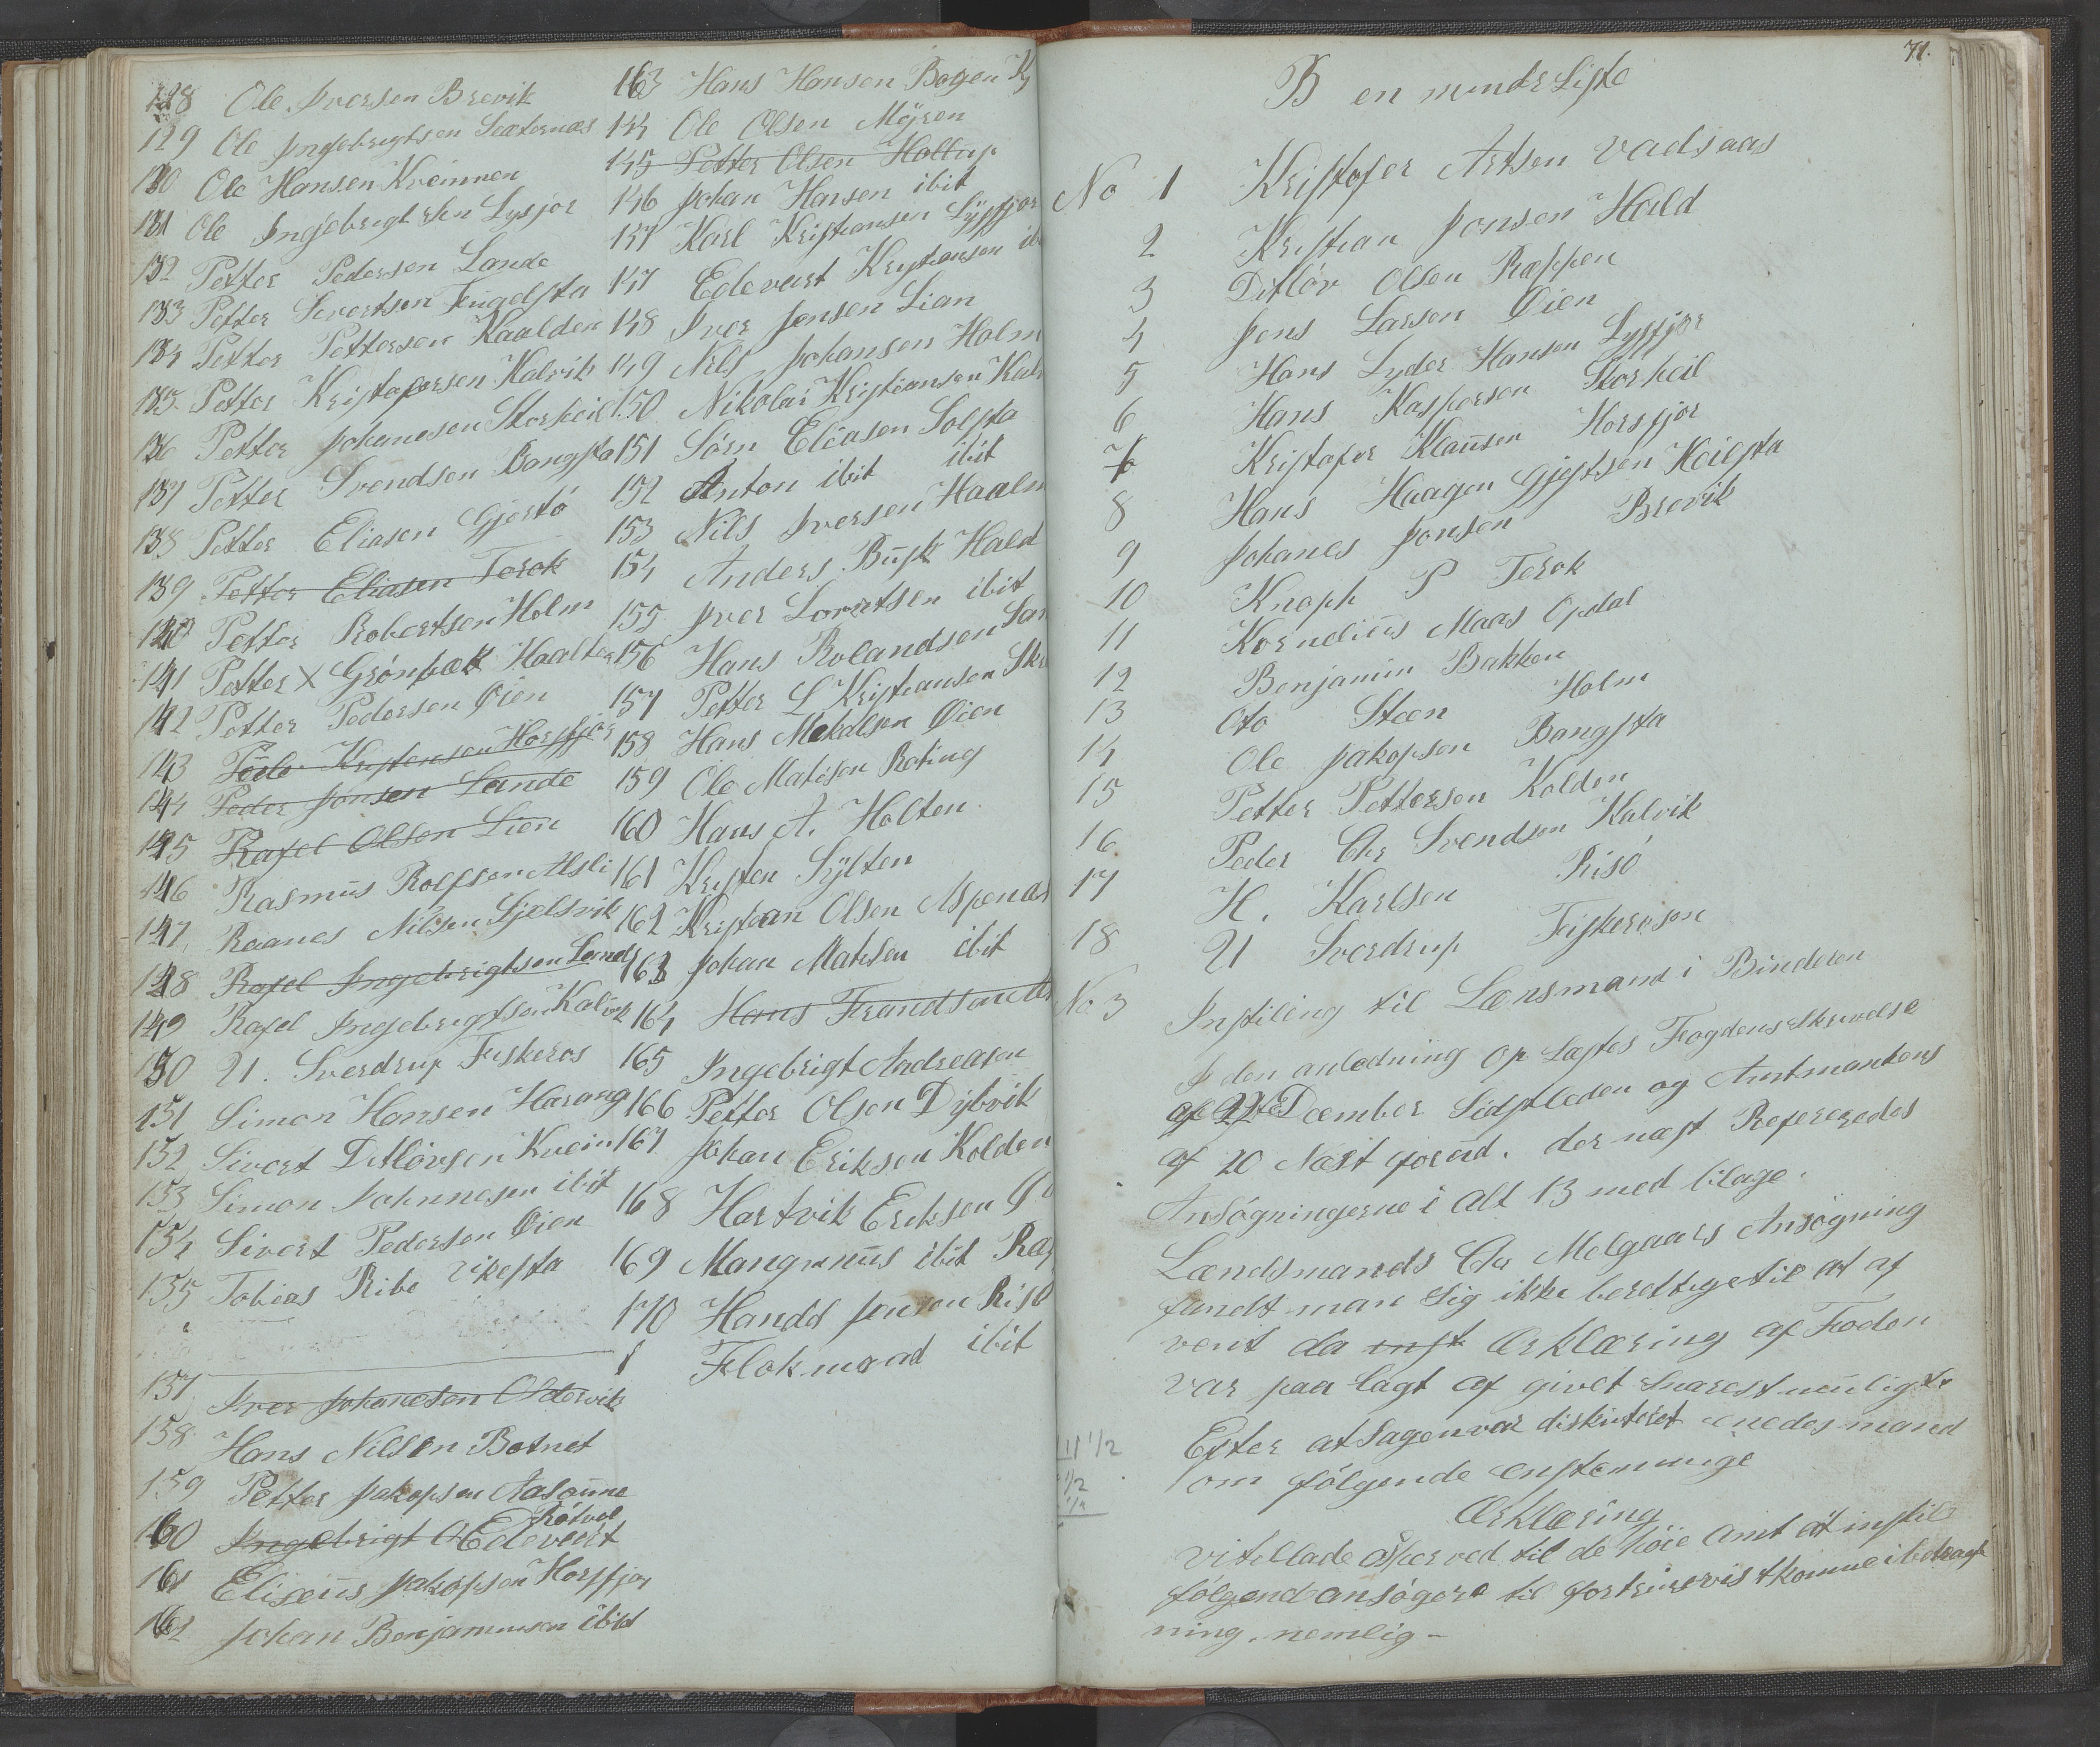 128 Ole Iversen Brevik
129 Ole Ingebrigtsen Sæternæs
130 Ole Hansen Kveinnen
131 Ole Ingebrigtsen Lysfjor
132 Petter Pedersen Lande
133 Petter Sivertsen Fugelsta
134 Petter Pettersen Kaalden
135 Petter Kristofersen Kalvik
136 Petter Johanesen Storheil
137 Petter Svendsen Bangsta
138 Petter Eliasen Gjertø
139 Petter Eliasen Terok
140 Petter Robertsen Holm
141 Petter X Grønbæk Haalten
142 Petter Pedersen Øien
143 Peder Kristensen Horsfjor
144 Peder Jonsen Lande
145 Rafel Olsen Lien
146 Rasmus Rolfsen Alsli
147 Raanes Nilsen Sjelsvik
148 Rafel Ingebrigtsen Lande
149 Rafel Ingebrigtsen Kalvik
150 U. Sverdrup Fiskeros
151 Simon Hansen Harang
152 Sivert Ditløvsen Kvein
153 Simon Johnnesen ibit
154 Sivert Pedersen Øien
155 Tobias Ribe Vikesta
157 Iver Johanesen Oldervik
158 Hans Nilsen Botnet
159 Petter Jakopsen Aasoune
Røtvol
160 Ingebrigt O Edevart
161 Eliseus Jakopsen Horsfjor
162 Johan Benjaminsen ibid
163 Hans Hansen Bogen
144 Ole Olsen Myren
145 Petter Olsen Hollup
146 Johan Hansen ibit
147 Karl Kristiansen Lysfjor
147 Edevart Kristiansen ib
148 Iver Jensen Lian
149 Nils Johansen Holm
150 Nikolai Kristiansen Kal
151 Sørn Eliasen Solsta
152 Anton ibit ibit
153 Nils Iversen Haalm
154 Anders Busk Hald
155 Iver Lorntsen ibit
156 Hans Rolandsen
157 Petter L Kristiansen
158 Hans Mekalsen Øien
159 Ole Matisen Roting
160 Hans A. Holten
161 Kristen Sylten
162 Kristian Olsen Aspenæs
163 Johan Matisen ibit
164 Hans Frandsen
165 Ingebrigt Andreasen
166 Petter Olsen Dybvik
167 Johan Eriksen Kolden
168 Hartvik Eriksen
169 Mangnnus ibit
170 Handd Jenson Risø
Flokmand ibit
71.
B en mindr Liste
No 1 Kristofer Artsen Vadsaas
2 Kristian Jonsen Hald
3 Ditløv Olsen Ræppen
4 Jens Larsen Øien
5 Hans Lyder Hansen Lysfjor
6 Hans Kaspersen Storheil
7 Kristofer Klausen Horsfjor
8 Hans Haagen Gjertsen Heilsta
9 Johanes Jonsen Brevik
10 Knoph P Terok
11 Kornelius Maas Opdal
12 Benjamin Bakken
13 Oto Steen Holm
14 Ole Jakopsen Bangsta
15 Petter Pettersen Kolden
16 Peder Chr Svendsen Kalvik
17 H. Karlsen Risø
18 U Sverdrup Fiskerosen
No 3 Instiling til Lænsmand i Bindelen
I den anledning op Lastes Fogdens Skrivelse
af 22 Dæmber Sidstleden og Amtmandens
af 20 Næst forud. der næst Refereredes
Ansøgningerne i alt 13 med bilage.
Lændsmands Chr Melgaars Ansøgning
fandt man Sig ikke berettiget til at af
vent da Ærklæring af Foden
var paa lagt af givet snarest muligt.
Efter at Sagen var diskuteret enedes mand
om følgende enstemmige
Ærklæring
Vi tellade os her ved til de høie Amt at instil
følgend ansøgere til fortrinsvis tkomme i betragt
ning, nemlig –
11 1/2
1/2
1/2